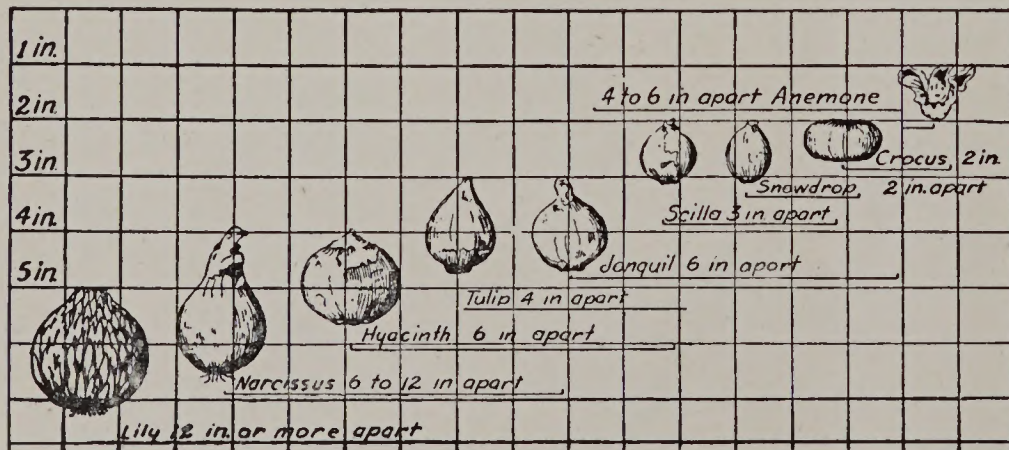 1 in.
2 in.
4 to 6 in apart Anemone
3 in.
Crocus, 2 in.
Snowdrop 2 in. apart
4 in.
Scilla 3 in apart
5 in.
Jonquil 6 in apart
Tulip 4 in apart
Hyacinth 6 in apart
Narcissus 6 to 12 in apart
Lily 12 in. or more apart